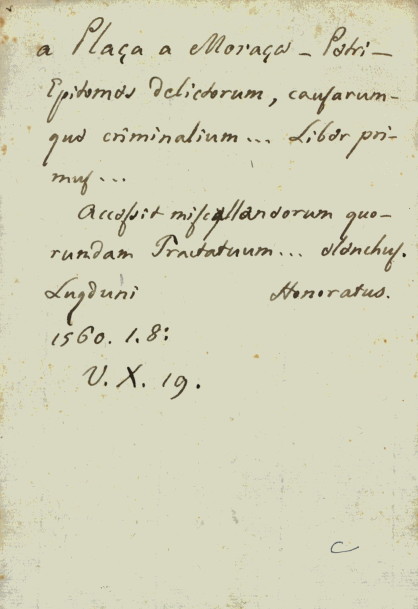 a Plaça a Moraça - Petri-
Epitomes delictorum, causarum-
que criminalium... Liber pri-
mus...
Accessit miscellaneorum quo-
rundam Tractatuum... elenchus.
Lugduni Honoratus.
1560. 1. 8:
V. X. 19.
C